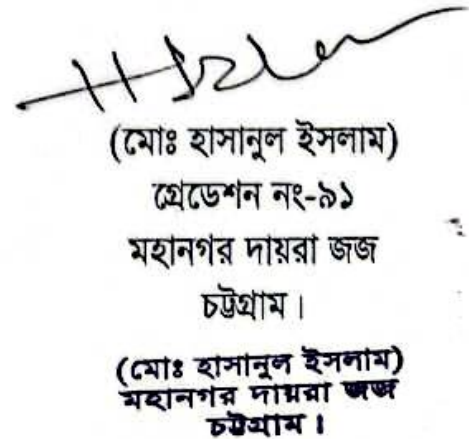 (মোঃ হাসানুল ইসলাম)
গ্রেডেশন নং-৯১
মহানগর দায়রা জজ
চট্টগ্রাম।
(মোঃ হাসানুল ইসলাম)
মহানগর দায়রা জজ
চট্টগ্রাম।